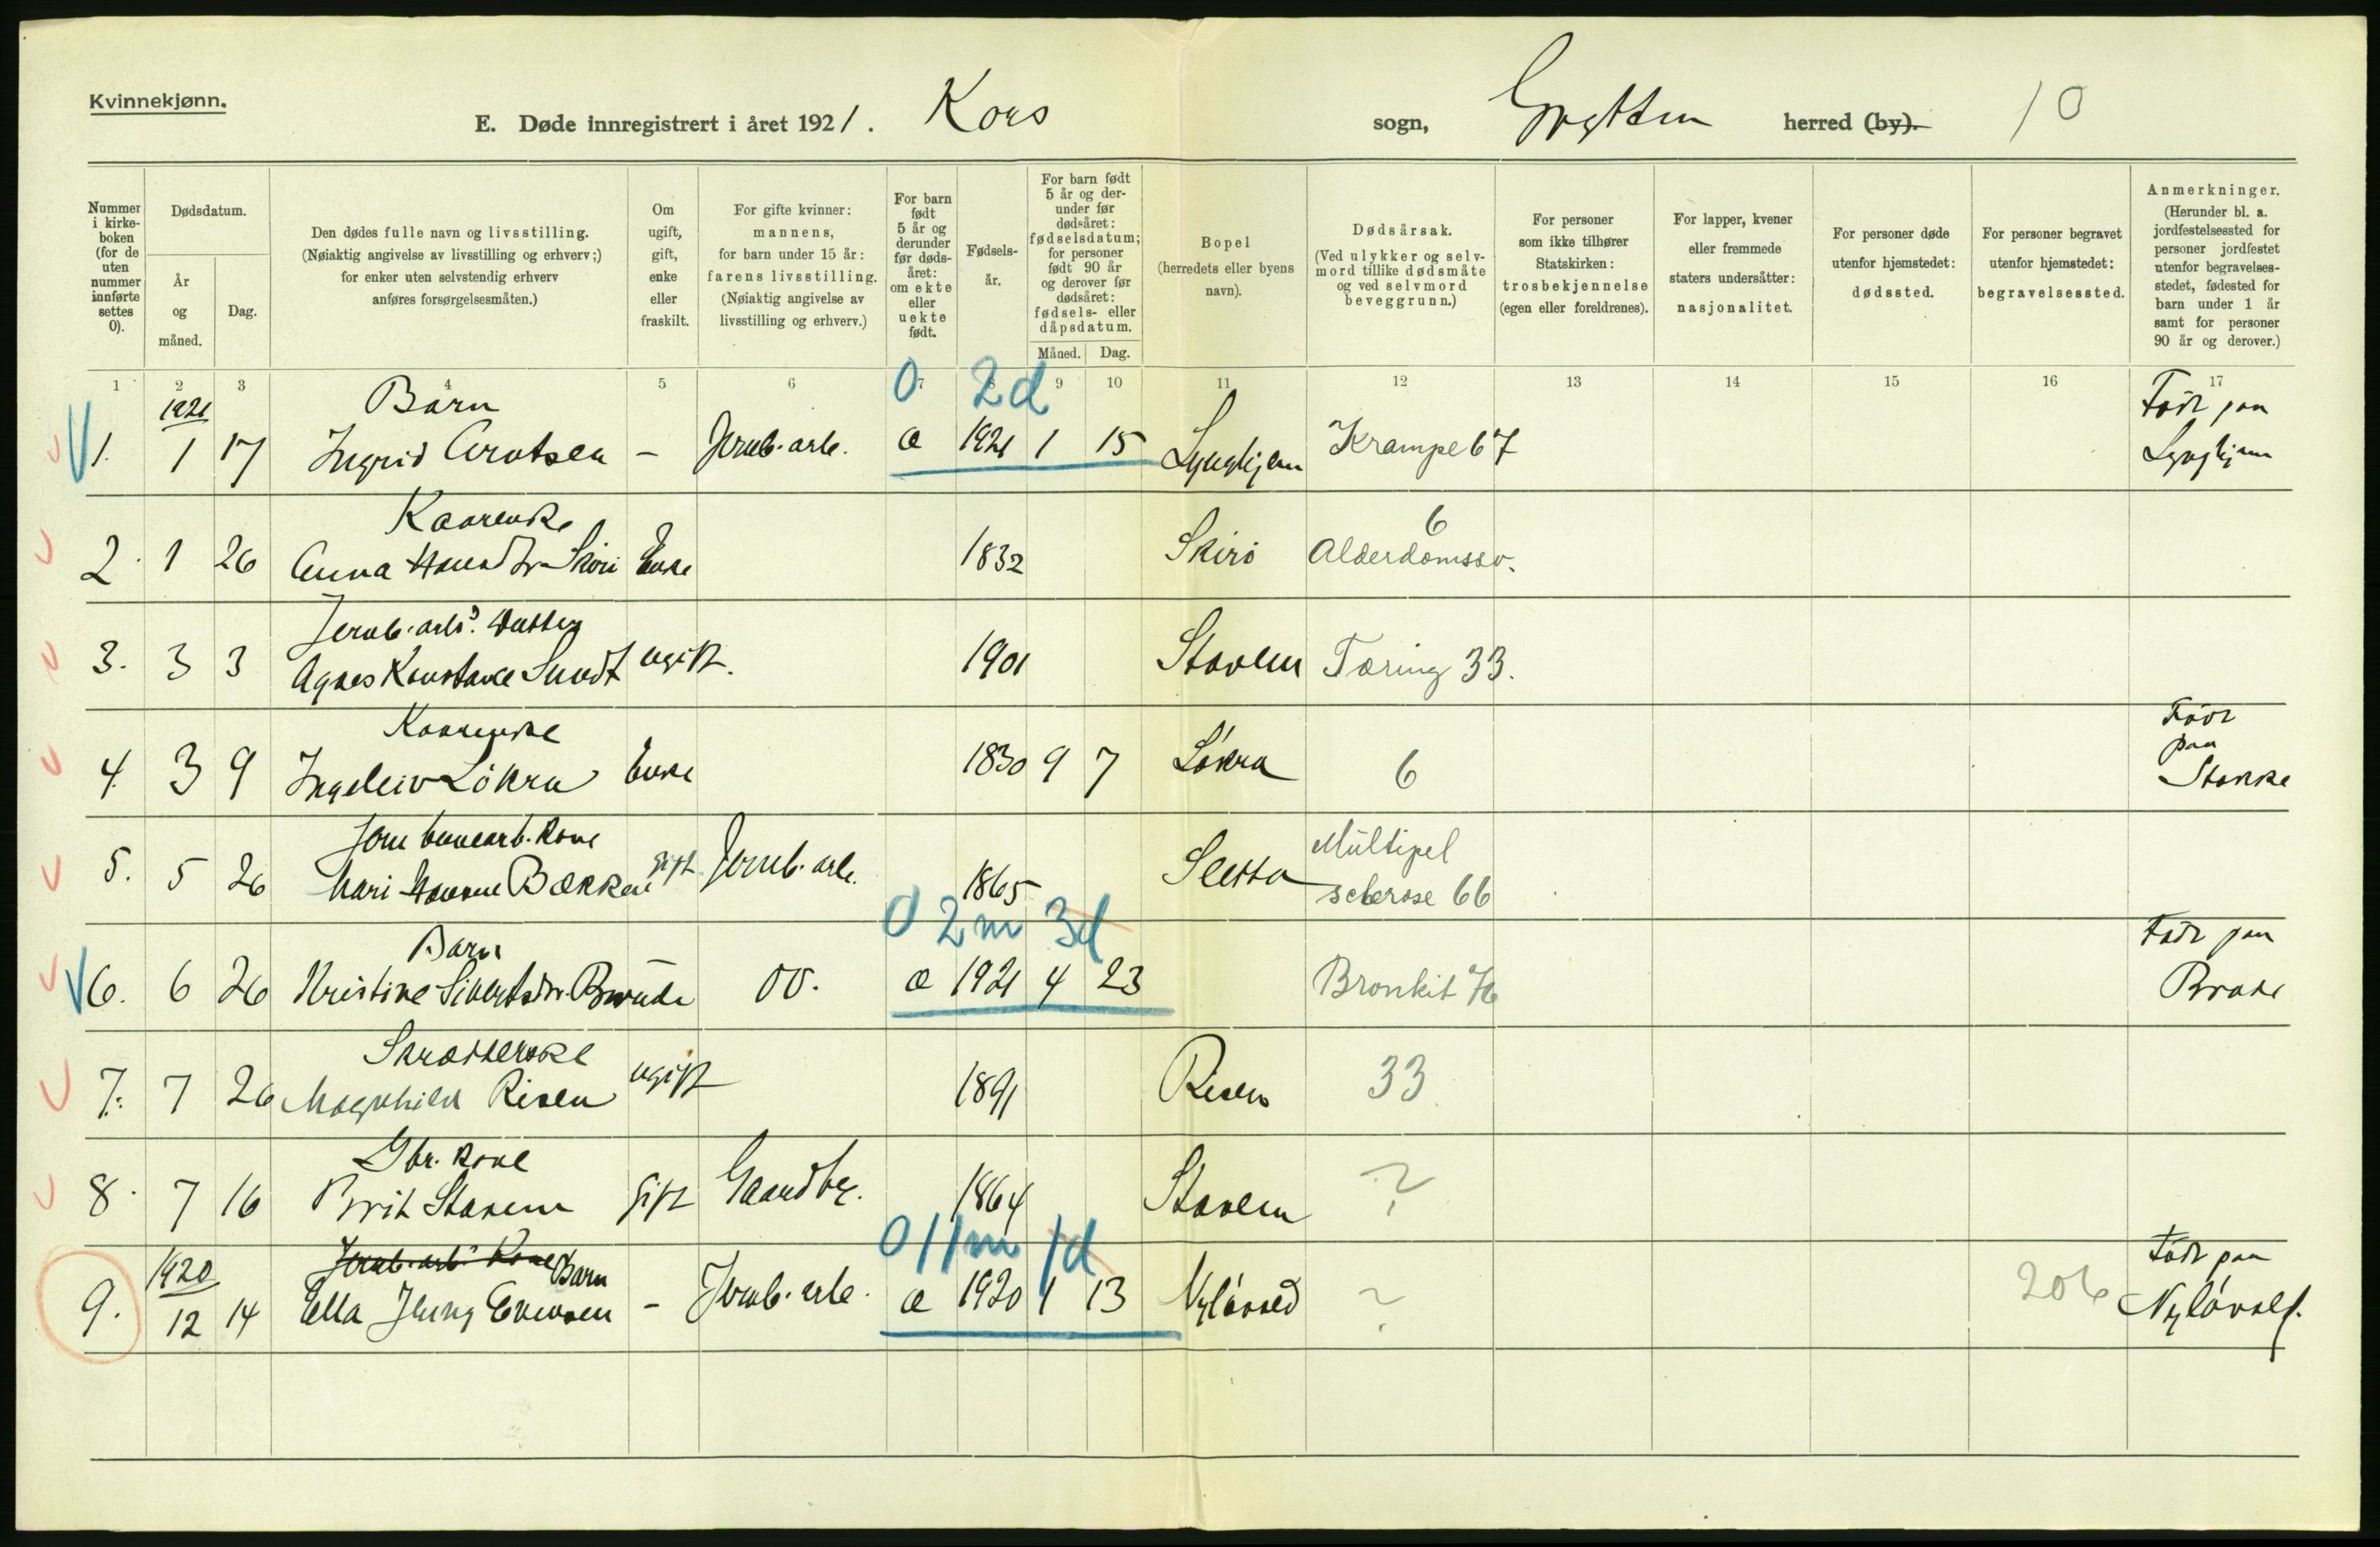 Kvinnekjønn.
E. Døde innregistrert i året 1921. Kors sogn, Grytten herred (by). 10
Nummer i kirkeboken (for de uten nummer innførte settes 0).
Dødsdatum.
År og måned.
Dag.
Den dødes fulle navn og livsstilling.
(Nøiaktig angivelse av livsstilling og erhverv;)
for enker uten selvstendig erhverv
anføres forsørgelsesmåten.)
Om ugift, gift, enke eller fraskilt.
For gifte kvinner:
mannens,
for barn under 15 år:
farens livsstilling.
(Nøiaktig angivelse av
livsstilling og erhverv.)
For barn født 5 år og derunder før dødsåret: om ekte eller uekte født.
Fødselsår.
For barn født 5 år og derunder før dødsåret: fødselsdatum; for personer født 90 år og derover før dødsåret: fødsels- eller dåpsdatum.
Måned. Dag.
Bopel
(herredets eller byens
navn).
Dødsårsak.
(Ved ulykker og selvmord tillike dødsmåte og ved selvmord beveggrunn.)
For personer
som ikke tilhører
Statskirken:
trosbekjennelse
(egen eller foreldrenes).
For lapper, kvener
eller fremmede
staters undersåtter:
nasjonalitet.
For personer døde
utenfor hjemstedet:
dødssted.
For personer begravet
utenfor hjemstedet:
begravelsessted.
Anmerkninger.
(Herunder bl. a.
jordfestelsessted for
personer jordfestet
utenfor begravelsesstedet, fødested for
barn under 1 år
samt for personer
90 år og derover.)
1 2 3 4 5 6 7 8 9 10 11 12 13 14 15 16 17
1921 Barn 0 2d Født paa
1. 1 17 Ingrid Arntsen - Jernb. arb. æ 1921 1 15 Lynghjem Krampe 67 Lynghjem
Kaarenke 6
2. 1 26 Anna Skiri Enke 1832 Skiri Alderdomssv.
Jernb. arb's. Datter
3. 3 3 Agnes Konstanse Sundt ugift. 1901 Stavem Tæring 33.
Kaarenke Født paa
4. 3 9 Ingeleiv Løkra Enke 1830 9 7 Løkra 6 Stokke
Jernbanearb. Kone Multipel
5. 5 26 Mari Bakken gift Jernb. arb. 1865 Sletta sclerose 66
Barn 0 2m 3d Født paa
6. 6 26 Kristine Sivertsdtr. Brude 00. æ 1921 4 23 Bronkit 76 Brude
Skrædderske
7. 7 26 Magnhild Risen ugift 1891 Risen 33
Gbr. Kone
8. 7 16 Brit Stavem gift Gaardbr. 1864 Stavem ?
1920 Jernb. arb's Kone Barn 0 11m 1d Født paa
9. 12 14 Ella Evensen - Jernb. arb. æ 1920 1 13 ? 206